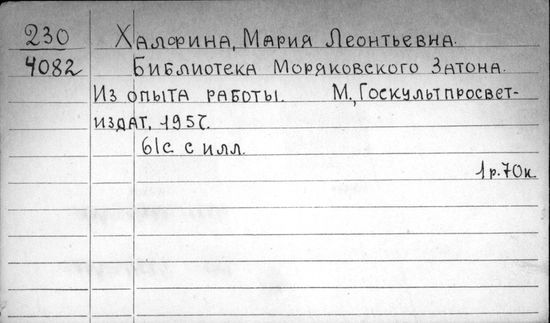 230 Халфина, Мария Леонтьевна.
4082 Библиотека Моряковского Затона.
Из опыта работы. М., Госкультпросвет-
издат, 1957.
61с. с илл.
1р.70к.